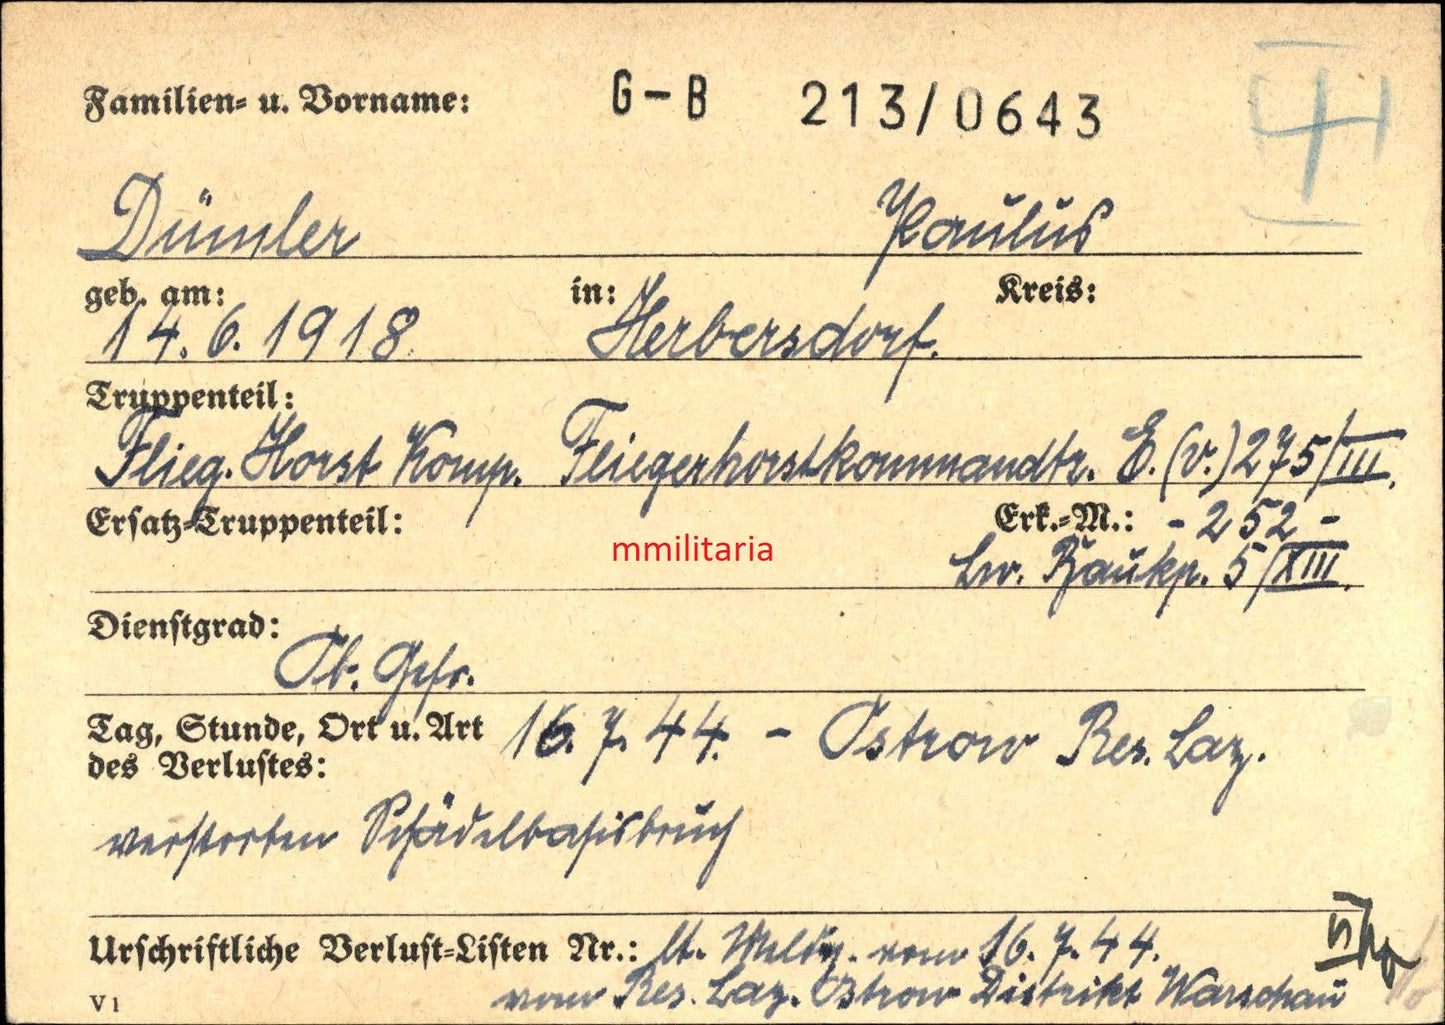 Familien= u. Vorname: G-B 213/0643
Dümler Paulus
geb. am: in: Kreis:
14.6.1918 Herbersdorf.
Truppenteil:
Flieg. Horst Komp. Fliegerhorstkommandtr. E.(v.)275/III.
Ersatz=Truppenteil: Erk.=M.: -252-
mmilitaria
Lw. Baukp. 5/XIII.
Dienstgrad:
Ob. Gefr.
Tag, Stunde, Ort u. Art 16.7.44. - Ostrow Res. Laz.
des Verlustes:
verstorben Schädelbasisbruch
Urschriftliche Verlust=Listen Nr.: lt. Meldg. vom 16.7.44.
vom Res. Laz. Ostrow Distrikt Warschau
V1